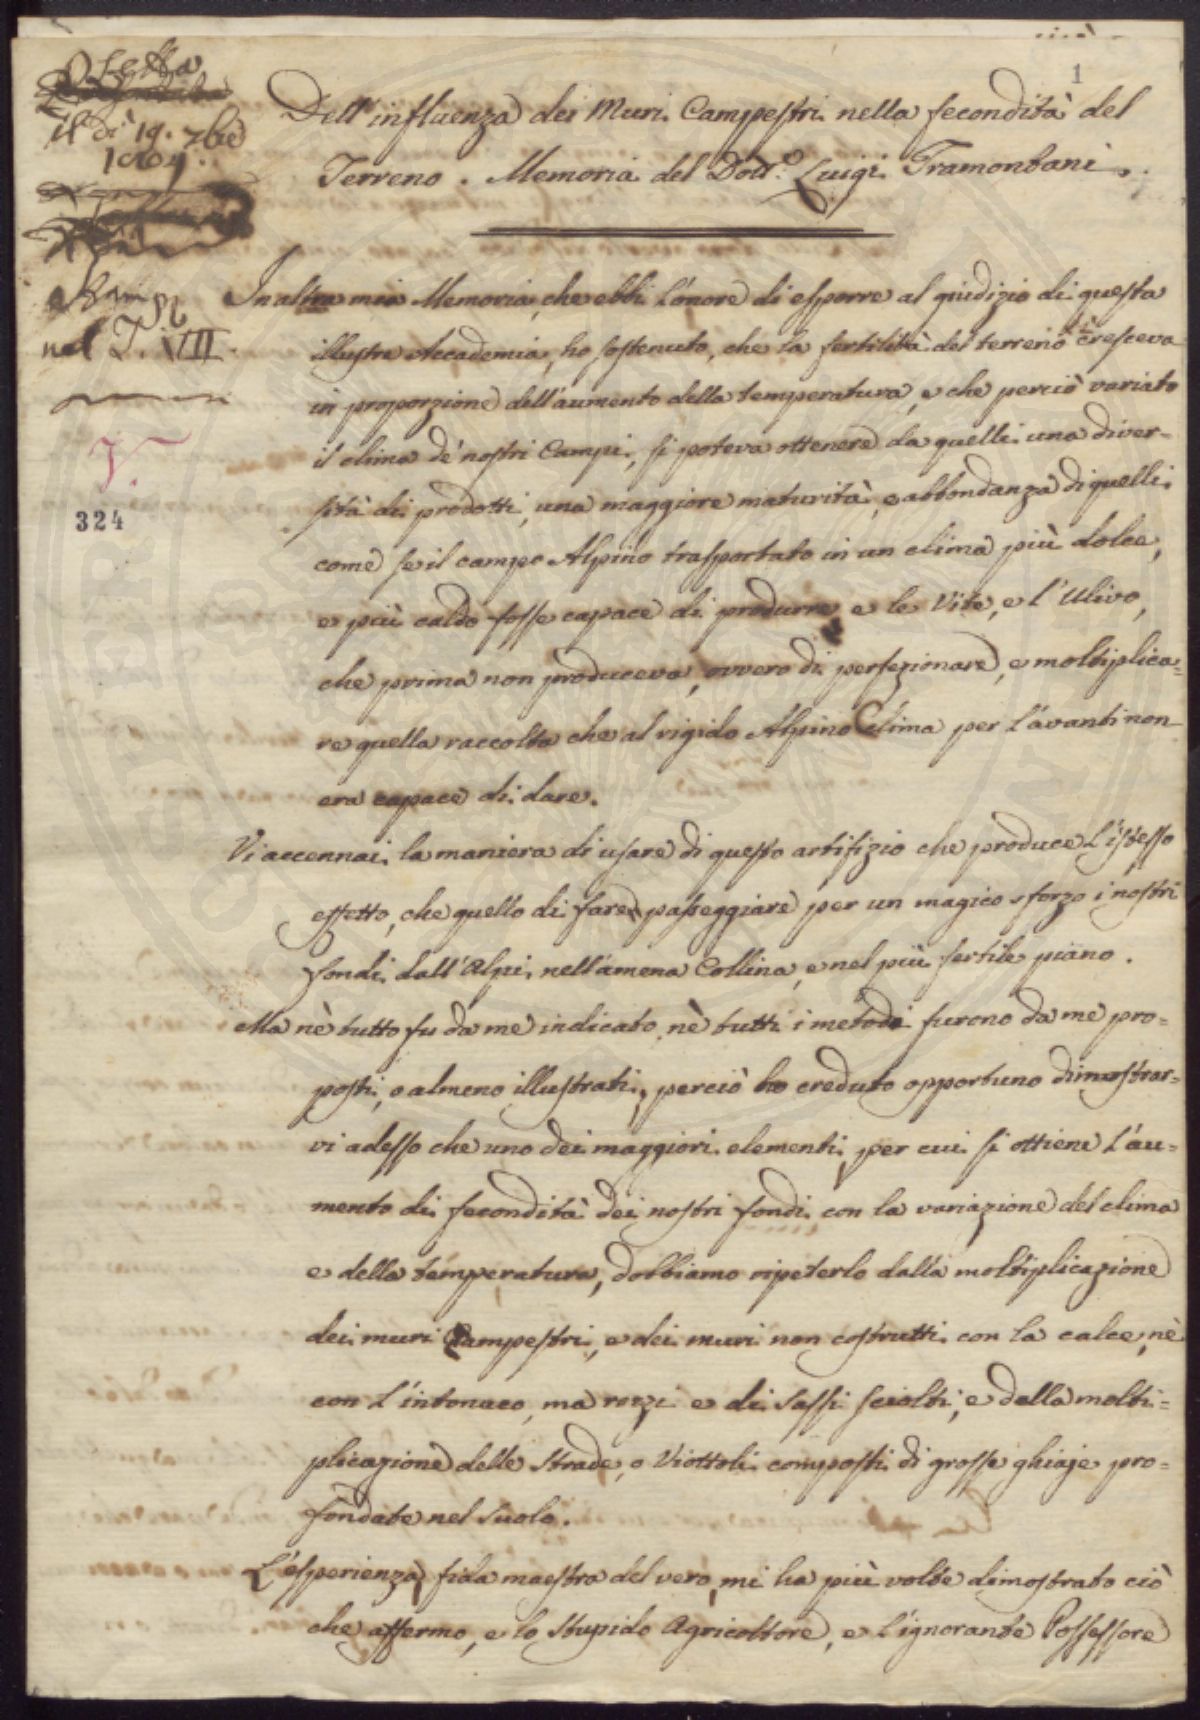 1
Letta
il di 19. 7bre
1804.
Stamp.
nel T. VII.
V.
324
Dell'influenza dei Muri Campestri nella fecondità del
Terreno. Memoria del Dott.e Luigi Tramontani.
In altra mia Memoria, che ebbi l'onore di esporre al giudizio di questa
illustre Accademia, ho sostenuto, che la fertilità del terreno cresceva
in proporzione dell'aumento della temperatura, e che perciò variato
il clima de' nostri Campi, si poteva ottenere da quelli una diver=
sità di prodotti, una maggiore maturità, e abbondanza di quelli
come se il campo Alpino trasportato in un clima più dolce,
e più caldo fosse capace di produrre e le Vite, e l'Ulivo,
che prima non produceva, ovvero di perfezionare, e moltiplica=
re quella raccolta che al rigido Alpino Clima per l'avanti non
era capace di dare.
Vi accennai la maniera di usare di questo artifizio che produce l'istesso
effetto, che quello di fare passeggiare per un magico sforzo i nostri
fondi dall'Alpi nell'amena Collina, e nel più fertile piano.
Ma nè tutto fu da me indicato, nè tutti i metodi furono da me pro=
posti, o almeno illustrati, perciò ho creduto opportuno dimostrar=
vi adesso che uno dei maggiori elementi, per cui si ottiene l'au=
mento di fecondità dei nostri fondi con la variazione del clima
e della temperatura, dobbiamo ripeterlo dalla moltiplicazione
dei muri Campestri, e dei muri non costrutti con la calce, nè
con l'intonaco, ma rozzi e di sassi sciolti, e dalla molti=
plicazione delle Strade, o Viottoli composti di grosse ghiaje pro=
fondate nel suolo.
L'esperienza, fida maestra del vero, mi ha più volte dimostrato ciò
che affermo, e lo stupido Agricoltore, e l'ignorante Possessore